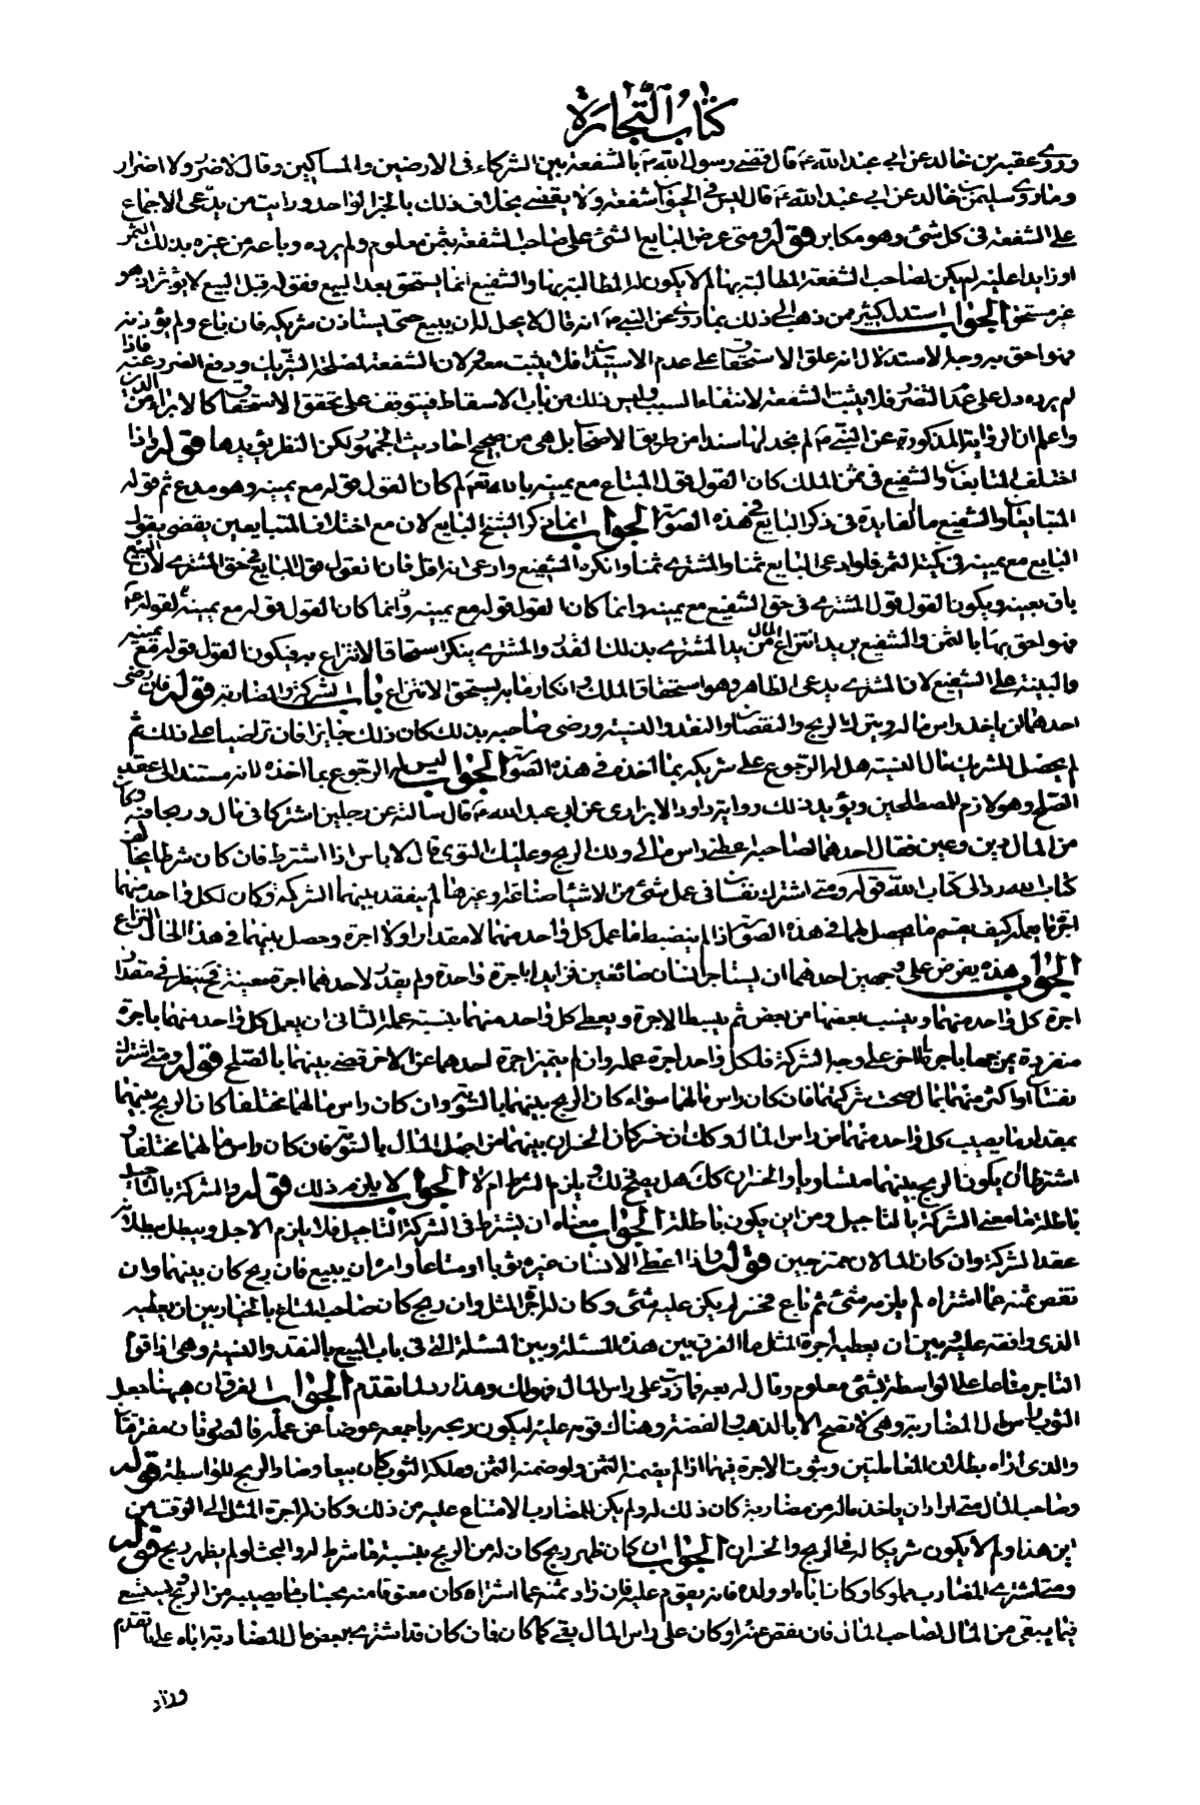 كتاب التجارة
وروى عقبة بن خالد عن ابي عبد الله ع قال قضى رسول الله ص بالشفعة بين الشركاء في الارضين والمساكين وقال لا ضرر ولا اضرار
وما روى سليمن بن خالد عن ابي عبد الله ع قال ليس في الحيوان شفعة ولا يقضى بخلاف ذلك بالخبر الواحد ورايت من يدعى الاجماع
على الشفعة في كل شئ وهو مكابر قوله ومتى عرض البايع الشئ على صاحب الشفعة بثمن معلوم ولم يرده وباعه من غيره بذلك الثمن
او زايدا عليه لم يكن لصاحب الشفعة المطالبة بها لم لا يكون له المطالبة بها والشفيع انما يستحق بعد البيع فقوله قبل البيع لا يؤثر اذ هو
غير مستحق الجواب استدل كثير من ذهب الى ذلك بما روى عن النبي ص انه قال لا يحل له ان يبيع حتى يستاذن شريكه فان باع ولم يؤذنه
فهو احق به وجه الاستدلال انه علق الاستحقاق على عدم الاستيذان فلا يثبت معه ولان الشفعة لمصلحة الشريك ودفع الضرر عنه فاذا
لم يرده دل على عدم التضرر فلا يثبت الشفعة لانتفاء السبب وليس ذلك من باب الاسقاط فيتوقف على تحقق الاستحقاق كالابراء من الدين
واعلم ان الرواية المذكورة عن النبي ص لم نجد لها سندا من طريق الاصحاب بل هي من صحيح احاديث الجمهور لكن النظر يؤيدها قوله واذا
اختلف المتبايعان والشفيع في ثمن الملك كان القول قول المبتاع مع يمينه بالله تعالى لم كان القول قوله مع يمينه وهو مدع ثم قوله
المتبايعان والشفيع ما الفايدة في ذكر البايع في هذه الصورة الجواب انما ذكر الشيخ البايع لان مع اختلاف المتبايعين يقضى بقول
البايع مع يمينه في كثير الثمن فلو ادعى البايع ثمنا والمشترى ثمنا وانكره الشفيع وادعى انه اقل فانا نقول قول البايع في حق المشترى لان المبيع
باق بعينه ويكون القول قول المشترى في حق الشفيع مع يمينه وانما كان القول قوله مع يمينه وانما كان القول قوله مع يمينه لقوله ع
فهو احق بها بالثمن والشفيع يريد انتزاع المال من يد المشترى بذلك القدر والمشترى ينكر استحقاق الانتزاع به فيكون القول قوله مع يمينه
والبينة على الشفيع لان المشترى يدعى الظاهر وهو استحقاق الملك وانكار ما به يستحق الانتزاع باب الشركة والمضاربة قوله فان رضى
احدهما ان ياخذ راس ماله ويترك الربح والنقصان والنقد والنسية ورضى صاحبه بذلك كان ذلك جايزا فان تراضيا على ذلك ثم
لم يحصل للشريك مال النسية هل له الرجوع على شريكه بما اخذه في هذه الصورة الجواب ليس له الرجوع بما اخذه لانه مستند الى عقد
الصلح وهو لازم للمصطلحين ويؤيد ذلك رواية داود الابزارى عن ابي عبد الله ع قال سالته عن رجلين اشتركا في مال وربحا فيه وكان
من المال دين وعين فقال احدهما لصاحبه اعطني راس مالى ولك الربح وعليك التوى قال لا باس اذا اشترط فان كان شرطا يخالف
كتاب الله رد الى كتاب الله قوله ومتى اشترك نفسان في عمل شئ من الاشياء صناعة وغيرها لم ينعقد بينهما الشركة وكان لكل واحد منهما
اجرة ما يعمله كيف يقسم ما يحصل لهما في هذه الصورة اذا لم ينضبط ما عمل كل واحد منهما لا مقدارا ولا اجرة وحصل بينهما في هذا الحال النزاع
الجواب هذه يفرض على وجهين احدهما ان يستاجر انسان صائغين فزايدا باجرة واحدة ولم يقدر لاحدهما اجرة معينة فح ينظر في مقدار
اجرة كل واحد منهما وينسب بعضها من بعض ثم يبسط الاجرة ويعطى كل واحد منهما بنسبة عمله الثاني ان يعمل كل واحد منهما باجرة
منفردة يمزجها باجرة الاخر على وجه الشركة فلكل واحد اجرة عمله وان لم يتميز اجرة احدهما عن الاخر قضى بينهما بالصلح قوله ومتى اشترك
نفسان او اكثر منهما بمال صحت شركتهما فان كان راس مالهما سواء كان الربح بينهما بالسوية وان كان راس مالهما مختلفا كان الربح بينهما
بمقدار ما يصيب كل واحد منهما من راس المال وكك ان خسر كان الخسران بينهما من اصل المال بالسوية فان كان راس مالهما مختلفا و
اشترطا ان يكون الربح بينهما متساويا والخسران كك هل يصح ذلك ويلزم الشرط ام لا الجواب لا يلزم ذلك قوله والشركة بالتاجيل
باطلة ما معنى الشركة بالتاجيل ومن اين يكون باطلة الجواب معناه ان يشترط في الشركة التاجيل فلا يلزم الاجل ويبطل ببطلانه
عقد الشركة وان كان المالان ممتزجين قوله واذا اعطى الانسان غيره ثوبا او متاعا وامره ان يبيع فان ربح كان بينهما وان
نقص ثمنه عما اشتراه لم يلزمه شئ ثم باع فخسر لم يكن عليه شئ وكان له اجرة المثل وان ربح كان صاحب المتاع بالخيار بين ان يعطيه
الذى وافقه عليه وبين ان يعطيه اجرة المثل ما الفرق بين هذه المسئلة وبين المسئلة التى في باب البيع بالنقد والنسية وهى اذا قوم
التاجر متاعا على الواسطة بشئ معلوم وقال له بعه فما زدت على راس المال فهو لك وهذا رد لما تقدم الجواب الفرق ان ههنا جعل
الثوب راس مال المضاربة وهى لا تصح الا بالذهب والفضة وهناك قوم عليه ليكون ربحه باجمعه عوضا عن عمله فالصورتان مفترقتان
والذى اراه بطلان المعاملتين وثبوت الاجرة فيهما اذا لم يضمنه الثمن ولو ضمنه الثمن وملكه الثوب كان بيعا وصار الربح للواسطة قوله
وصاحب المال متى اراد ان ياخذ ماله من مضاربه كان ذلك له ولم يكن للمضارب الامتناع عليه من ذلك وكان له اجرة المثل الى الوقت من
اين هذا ولم لا يكون شريكا له في الربح والخسران الجواب ان كان ظهر ربح كان له من الربح بنسبة ما شرط له والبحث لو لم يظهر ربح قوله
ومتى اشترى المضارب مملوكا وكان اباه او ولده فانه يقوم عليه فان زاد ثمنه عما اشتراه كان معتوقا منه بحساب ما يصيبه من الربح ويستسعى
فيما يبقى من المال لصاحب المال فان نقص عنه او كان على راس المال بقى كما كان فان كان قد اشترى ببعض مال المضاربة اباه على ما تقدم
وزاد